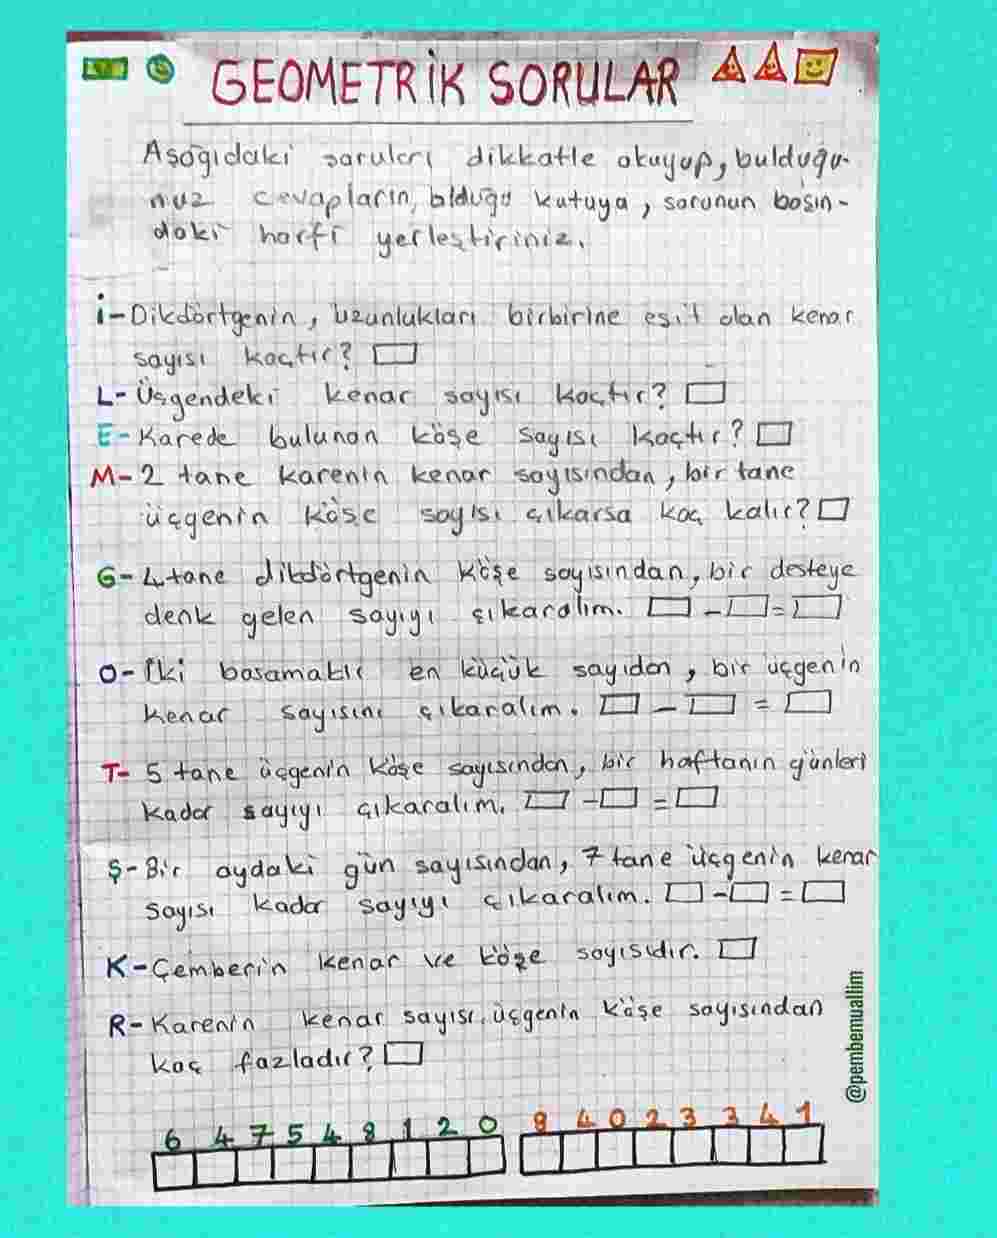 GEOMETRİK SORULAR
Aşağıdaki soruları dikkatle okuyup, bulduğu-
nuz cevapların, olduğu kutuya, sorunun başın-
daki harfi yerleştiriniz.
İ-Dikdörtgenin, uzunlukları birbirine eşit olan kenar
sayısı kaçtır?
L-Üçgendeki kenar sayısı kaçtır?
E-Karede bulunan köşe sayısı kaçtır?
M-2 tane karenin kenar sayısından, bir tane
üçgenin köşe sayısı çıkarsa kaç kalır?
G-4 tane dikdörtgenin köşe sayısından, bir desteye
denk gelen sayıyı çıkaralım. - =
O-İki basamaklı en küçük sayıdan, bir üçgenin
kenar sayısını çıkaralım. - =
T-5 tane üçgenin köşe sayısından, bir haftanın günleri
kadar sayıyı çıkaralım. - =
Ş-Bir aydaki gün sayısından, 7 tane üçgenin kenar
sayısı kadar sayıyı çıkaralım. - =
K-Çemberin kenar ve köşe sayısıdır.
R-Karenin kenar sayısı, üçgenin köşe sayısından
kaç fazladır?
6 4 7 5 4 8 1 2 0 9 4 0 2 3 3 4 1
@pembemuallim